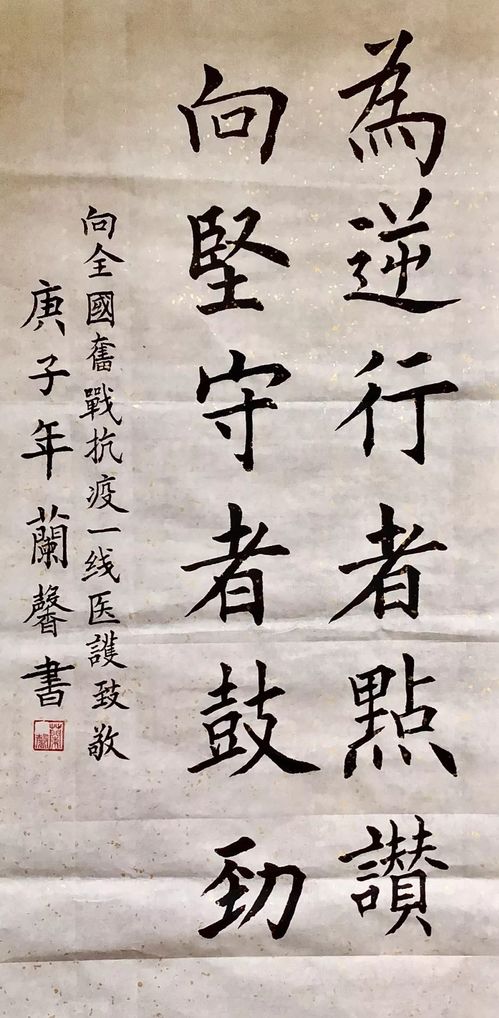 為逆行者點讚
向堅守者鼓勁
向全國奮戰抗疫一线医護致敬
庚子年蘭馨書